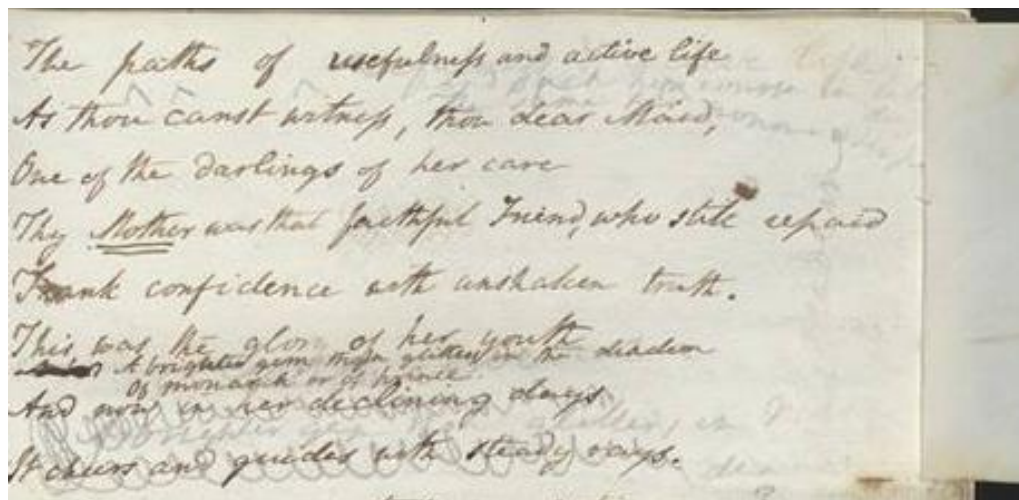 The paths of usefulness and active life
As thou canst witness, thou dear Maid,
One of the darlings of her care
Thy Mother was that faithful Friend, who still repaid
Frank confidence with unshaken truth.
This was the glory of her youth
A brighter gem ne'er glitter'd in the diadem
Of monarch or of prince
And now in her declining days
It cheers and guides with steady rays.